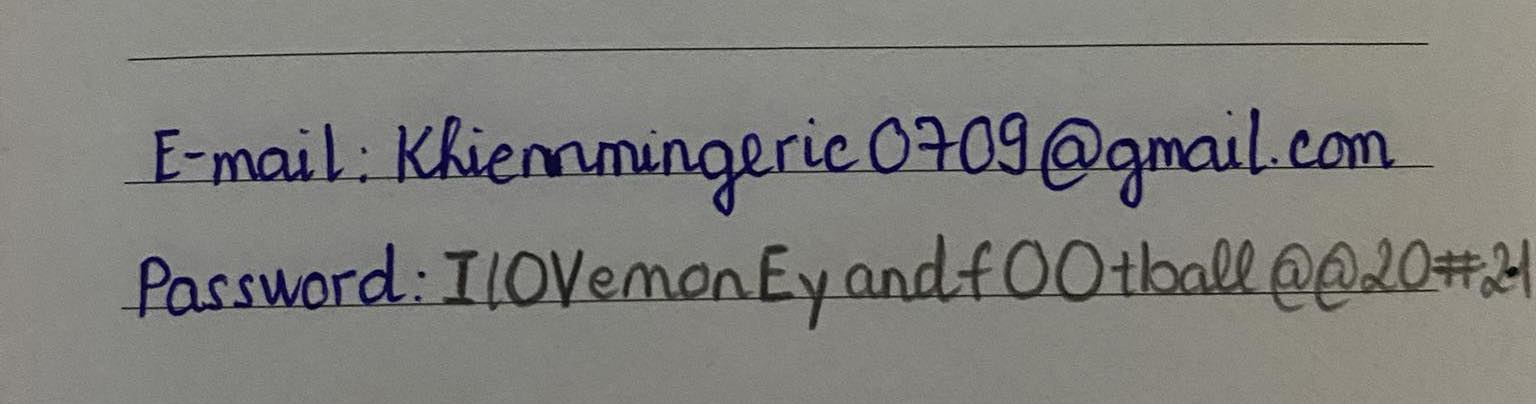 E-mail: Khiemmingeric0709@gmail.com
Password: IlOVemonEyandfOOtball@@20#21